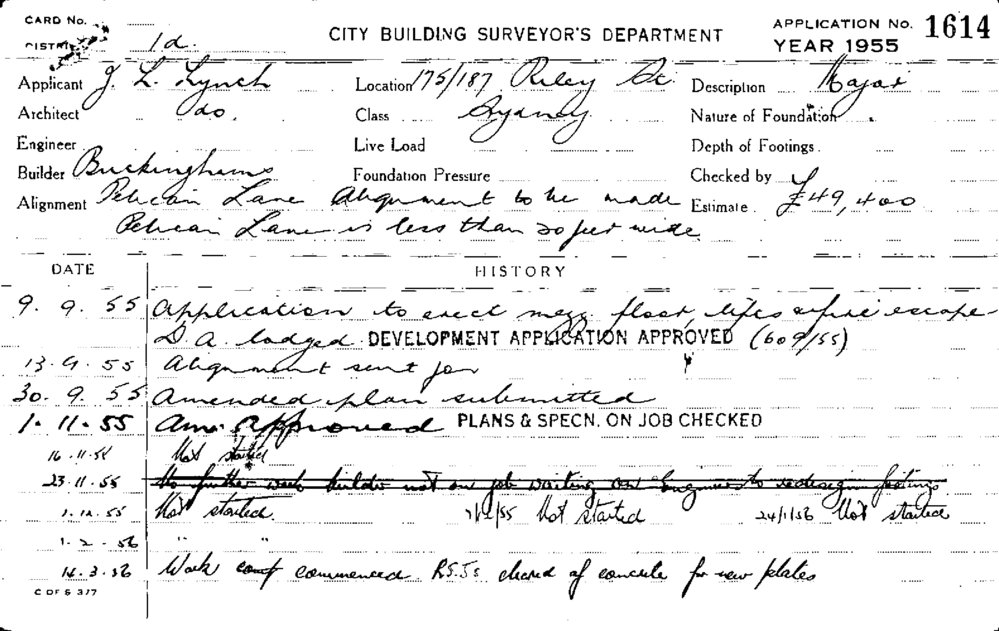 CARD No.
CITY BUILDING SURVEYOR'S DEPARTMENT
APPLICATION No. 1614
DISTRICT 1d.
YEAR 1955
Applicant J. L. Lynch Location 175/187 Riley St. Description Major
Architect do. Class Sydney Nature of Foundation
Engineer Live Load Depth of Footings
Builder Buckinghams Foundation Pressure Checked by
Alignment Pelican Lane Alignment to be made Estimate £49,400
Pelican Lane is less than 20 feet wide
DATE HISTORY
9. 9. 55 Application to erect mezz. floor, lifts & fire escape
D. A. lodged. DEVELOPMENT APPLICATION APPROVED (609/55)
13. 9. 55 Alignment sent for
30. 9. 55 Amended plan submitted
1. 11. 55 Am. Approved PLANS & SPECN. ON JOB CHECKED
16. 11. 55 Not started
23. 11. 55 No further work builder not on job waiting on Engineers to redesign footings
1. 12. 55 Not started. Not started 24/1/56 Not started
1. 2. 56 " "
14. 3. 56 Work commenced R.S.Js cleared of concrete for new plates
C OF S 377